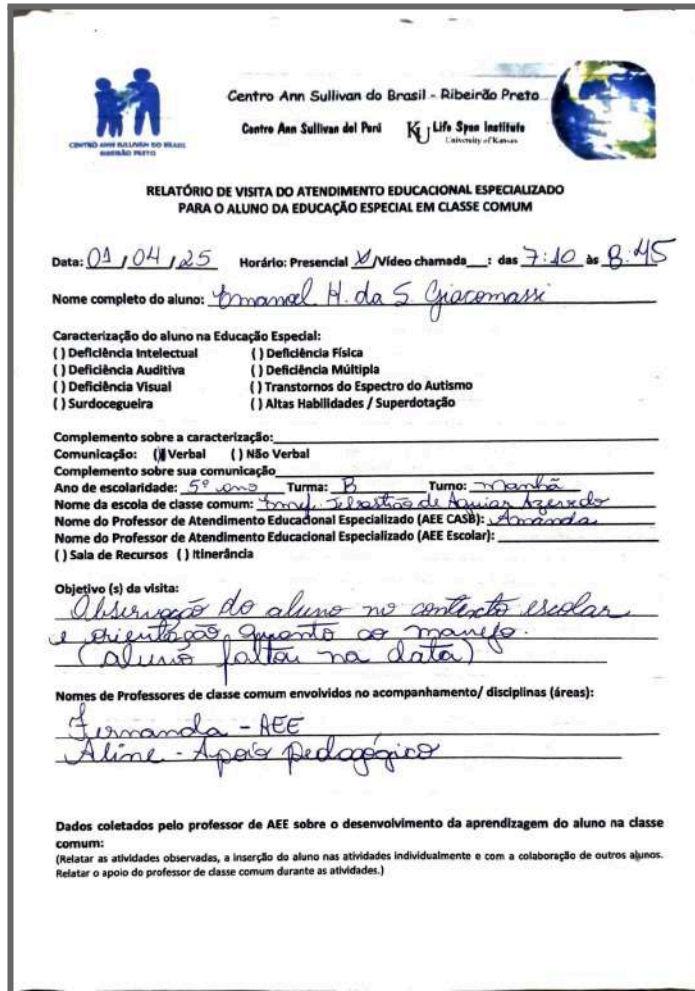 Centro Ann Sullivan do Brasil - Ribeirão Preto
Centro Ann Sullivan del Perú KU Life Span Institute
University of Kansas
CENTRO ANN SULLIVAN DO BRASIL
RIBEIRÃO PRETO
RELATÓRIO DE VISITA DO ATENDIMENTO EDUCACIONAL ESPECIALIZADO
PARA O ALUNO DA EDUCAÇÃO ESPECIAL EM CLASSE COMUM
Data: 01 / 04 / 25 Horário: Presencial X/Vídeo chamada___: das 7:10 às 8:45
Nome completo do aluno: Emanoel H. da S. Giacomassi
Caracterização do aluno na Educação Especial:
( ) Deficiência Intelectual ( ) Deficiência Física
( ) Deficiência Auditiva ( ) Deficiência Múltipla
( ) Deficiência Visual ( ) Transtornos do Espectro do Autismo
( ) Surdocegueira ( ) Altas Habilidades / Superdotação
Complemento sobre a caracterização:
Comunicação: (X) Verbal ( ) Não Verbal
Complemento sobre sua comunicação
Ano de escolaridade: 5º ano Turma: B Turno: Manhã
Nome da escola de classe comum: Emef. Sebastião de Aguiar Azevedo
Nome do Professor de Atendimento Educacional Especializado (AEE CASB): Amanda
Nome do Professor de Atendimento Educacional Especializado (AEE Escolar):
( ) Sala de Recursos ( ) Itinerância
Objetivo (s) da visita:
Observação do aluno no contexto escolar
e orientação quanto ao manejo.
(aluno faltou na data)
Nomes de Professores de classe comum envolvidos no acompanhamento/ disciplinas (áreas):
Fernanda - AEE
Aline - Apoio pedagógico
Dados coletados pelo professor de AEE sobre o desenvolvimento da aprendizagem do aluno na classe
comum:
(Relatar as atividades observadas, a inserção do aluno nas atividades individualmente e com a colaboração de outros alunos.
Relatar o apoio do professor de classe comum durante as atividades.)